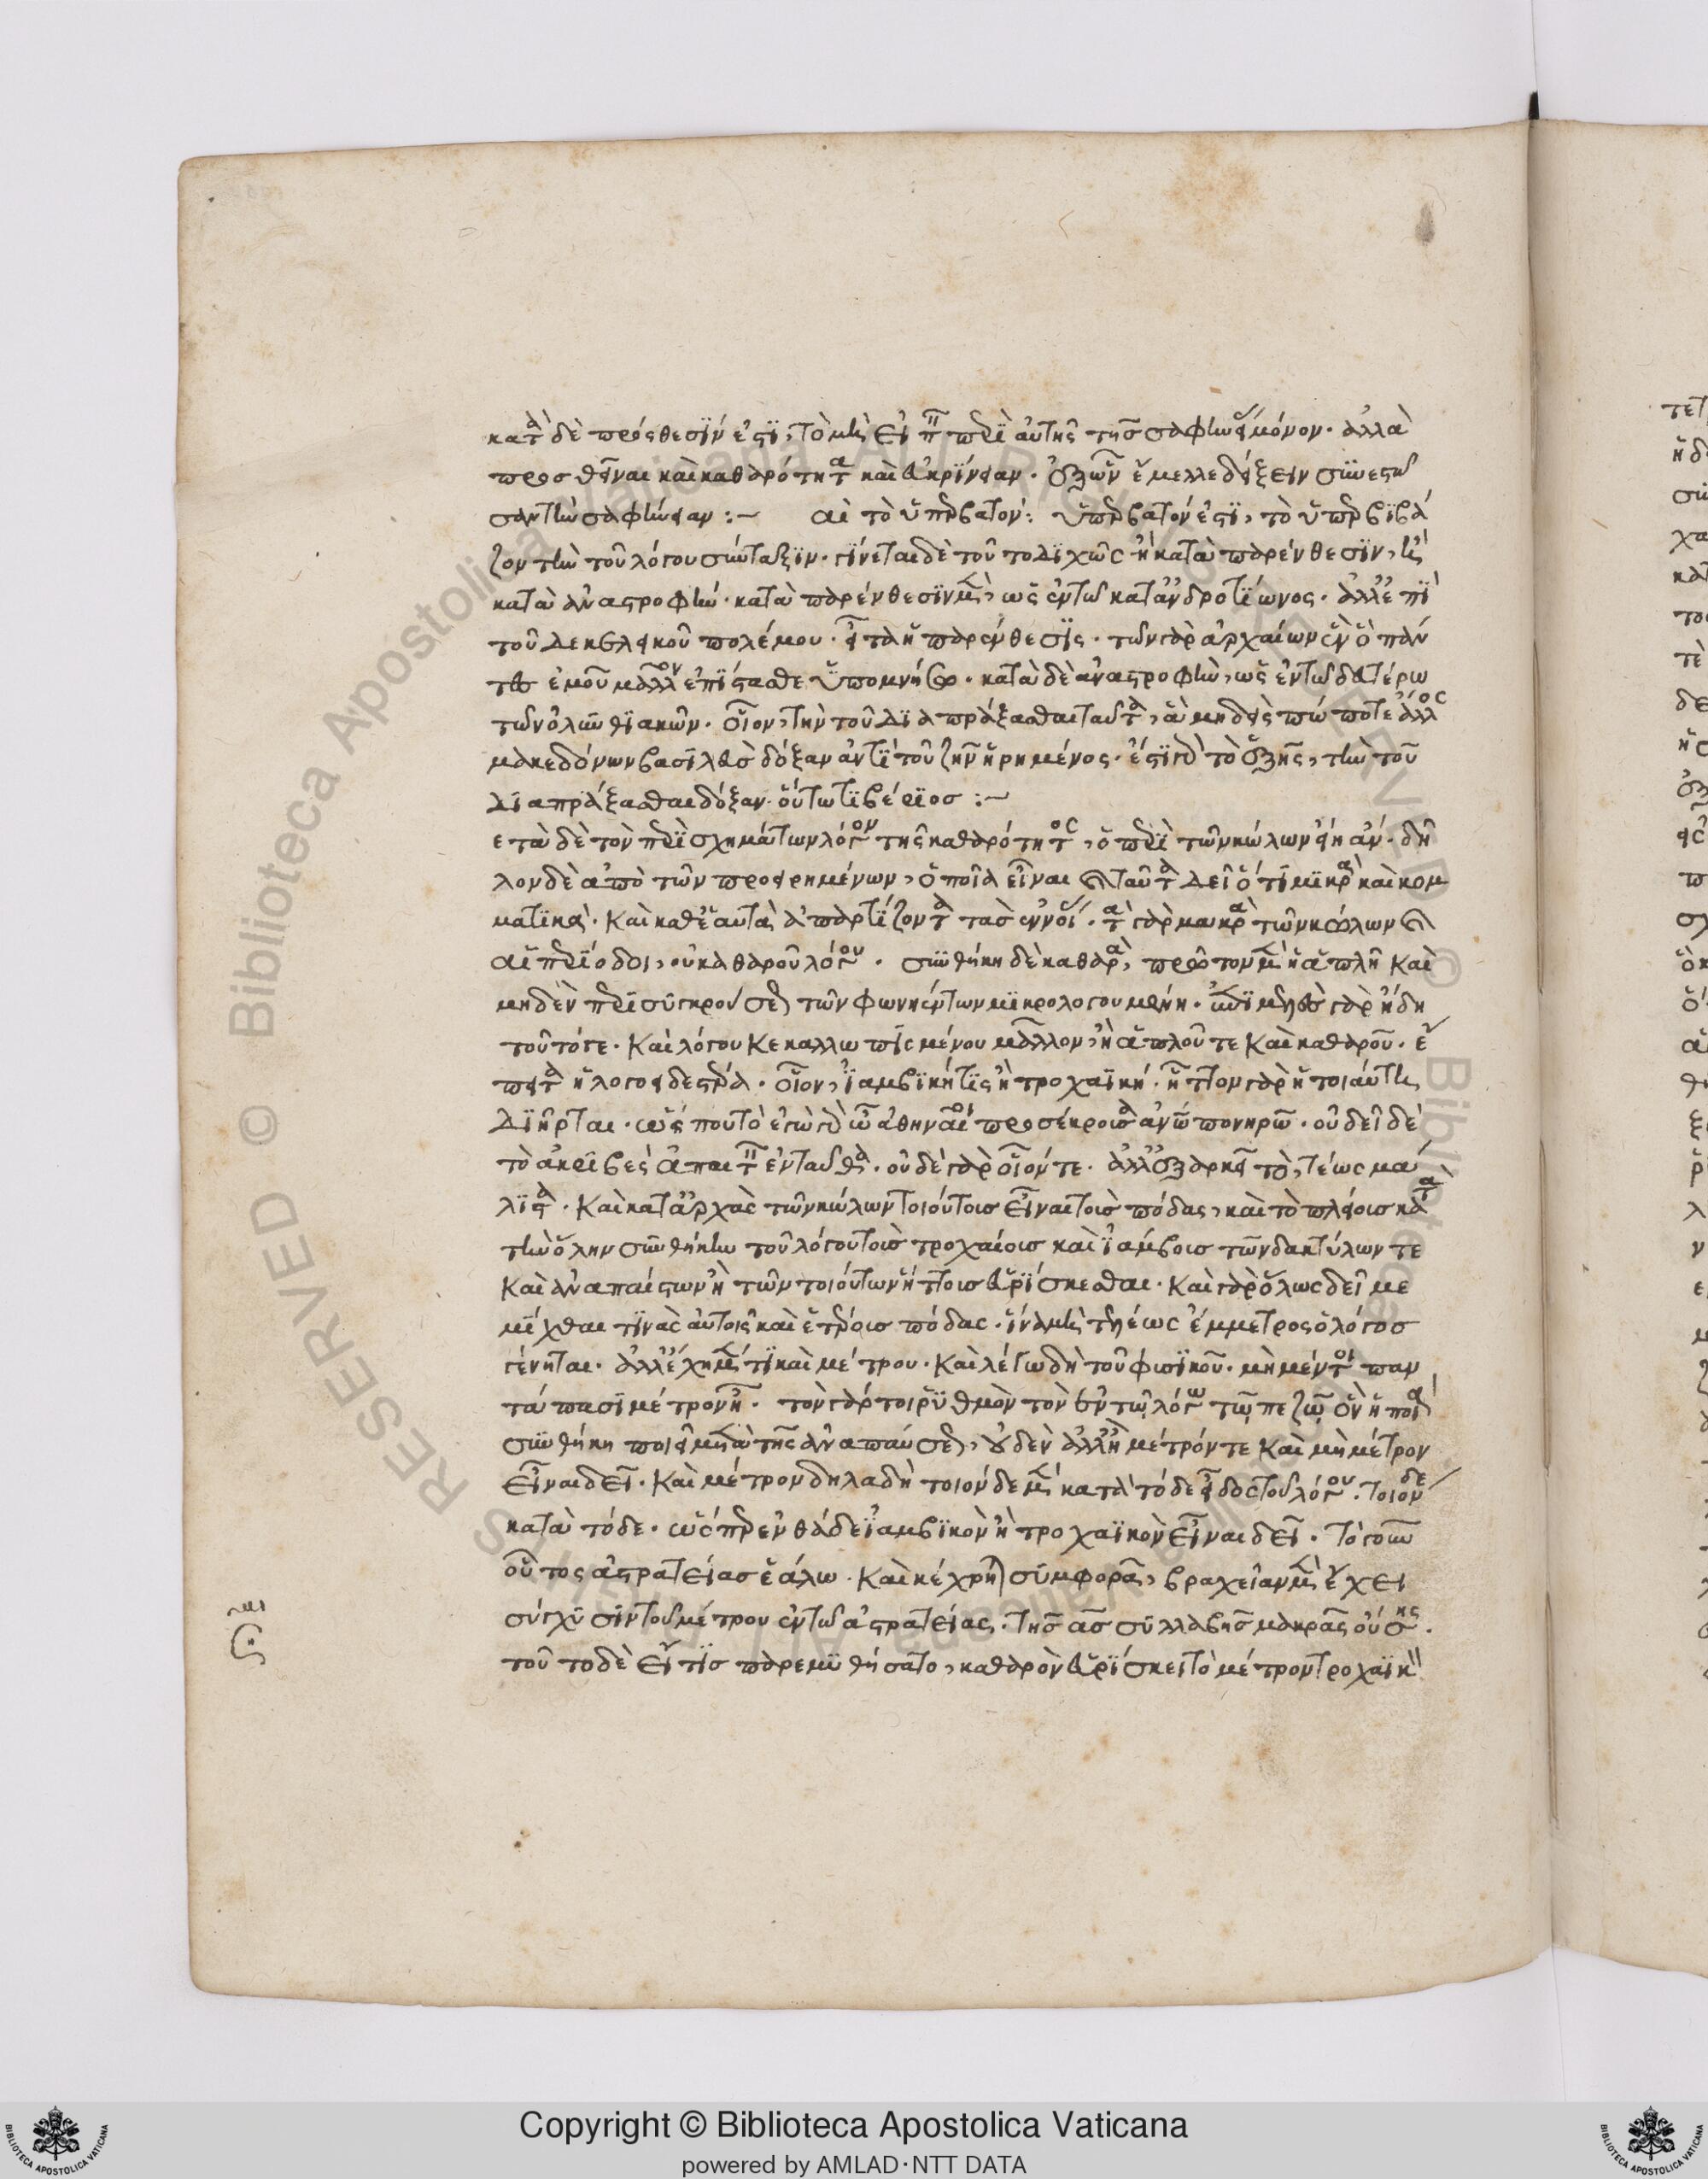 κατὰ δὲ πρόσθεσίν ἐστι, τὸ μὴ εἰπεῖν περὶ αὐτῆς τῆς σαφηνείας μόνον· ἀλλὰ
προσθεῖναι καὶ καθαρότητα καὶ εὐκρίνειαν· ἐξ ὧν ἔμελλε δείξειν συνεστῶ
σαν τὴν σαφήνειαν :~ αὶ τὸ ὑπερβατόν: ὑπερβατόν ἐστι, τὸ ὑπερβιβά
ζον τὴν τοῦ λόγου σύνταξιν· γίνεται δὲ τοῦτο διχῶς ἢ κατὰ παρένθεσιν, ἢ
κατὰ ἀναστροφήν· κατὰ παρένθεσιν μὲν, ὡς ἐν τῶ κατ' ἀνδροτίωνος· ἀλλ' ἐπὶ
τοῦ δεκελεικοῦ πολέμου· εἶτα ἡ παρένθεσις· τῶν γὰρ ἀρχαίων ἓν ὃ πάν
τες ἐμοῦ μᾶλλον ἐπίστασθε ὑπομνήσω· κατὰ δὲ ἀναστροφὴν, ὡς ἐν τῶ δευτέρω
τῶν ὀλυνθιακῶν· οἷον, τὴν τοῦ διαπράξασθαι ταῦτα, ἃ μηδεὶς πώποτε ἄλλος
μακεδόνων βασιλεὺς δόξαν ἀντὶ τοῦ ζῆν ἡρημένος· ἔστι γὰρ τὸ ἑξῆς, τὴν τοῦ
διαπράξασθαι δόξαν· οὕτω τιβέριος :~
ετὰ δὲ τὸν περὶ σχημάτων λόγον τῆς καθαρότητος, ὁ περὶ τῶν κώλων εἴη ἄν· δῆ
λον δὲ ἀπὸ τῶν προειρημένων, ὁποῖα εἶναι ταῦτα δεῖ ὅτι μικρὰ καὶ κομ
ματικὰ· καὶ καθ' ἑαυτὰ ἀπαρτίζοντα τὰς ἐννοί· τὰ γὰρ μακρὰ τῶν κώλων
αἱ περίοδοι, οὐ καθαροῦ λόγου· συνθήκη δὲ καθαρὰ, πρῶτον μὲν ἡ ἁπλῆ καὶ
μηδὲν περὶ συγκρούσεως τῶν φωνηέντων μικρολογουμένη· γὰρ ἤδη
τοῦτό γε· καὶ λόγου κεκαλλωπισμένου μᾶλλον, ἢ ἁπλοῦ τε καὶ καθαροῦ· ἔ
πειτα ἡ λογοειδεστέρα· οἷον, ἰαμβική τις ἢ τροχαϊκή· ἧττον γὰρ ἡ τοιαύτη
διῆρται· ὥς που τὸ ἐγὼ γὰρ ὦ ἀθηναῖοι προσέκρουσα ἀνθρώπω πονηρῶ· οὐ δεῖ δὲ
τὸ ἀκριβὲς ἀπαιτεῖν ἐνταῦθα· οὐδὲ γὰρ οἷόν τε· ἀλλ' ἐξαρκεῖ τὸ, τέως μά
λιστα· καὶ κατ' ἀρχὰς τῶν κώλων τοιούτοις εἶναι τοῖς πόδας, καὶ τὸ πλέοις κατὰ
τὴν ὅλην συνθήκην τοῦ λόγου τοῖς τροχαίοις καὶ ἰάμβοις τῶν δακτύλων τε
καὶ ἀναπαίστων ἢ τῶν τοιούτων ἥττοις εὑρίσκεσθαι· καὶ γὰρ ὅλως δεῖ με
μίχθαι τινὰς αὐτοῖς καὶ ἑτέροις πόδας· ἵνα μὴ τελέως ἔμμετρος ὁ λόγος
γένηται· ἀλλ' ἔχη μέν τι καὶ μέτρου· καὶ λέγω δὴ τοῦ φυσικοῦ· μὴ μέντοι παν
τάπασι μέτρον ἦ· τὸν γάρ τοι ῥυθμὸν τὸν ἐν τῶ λόγω τῶ πεζῶ ὃν ἡ ποιὰ
συνθήκη ποιεῖ μετὰ τῆς ἀναπαύσεως, οὐδὲν ἀλλ' ἢ μέτρόν τε καὶ μὴ μέτρον
εἶναι δεῖ· καὶ μέτρον δηλαδὴ τοιόνδε μὲν κατὰ τόδε εἶδος τοῦ λόγου· τοιόνδε
κατὰ τόδε· ὥσπερ ἐνθάδε ἰαμβικὸν ἢ τροχαϊκὸν εἶναι δεῖ· τὸ γοῦν
οὗτος ἀστρατείας ἑάλω· καὶ κέχρηται συμφορᾶ, βραχεῖαν μὲν ἔχει
σύγχυσιν τοῦ μέτρου ἐν τῶ ἀστρατείας· τῆς ας συλλαβῆς μακρᾶς οὔσης·
τοῦτο δὲ εἴ τις παρεμυθήσατο, καθαρὸν εὑρίσκει τὸ μέτρον τροχαϊκὸν
Copyright © Biblioteca Apostolica Vaticana
powered by AMLAD·NTT DATA